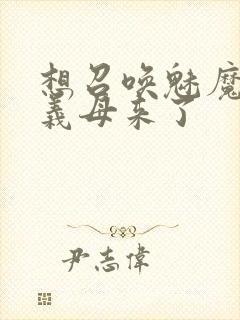 想召唤魅魔
義母来了
尹志偉